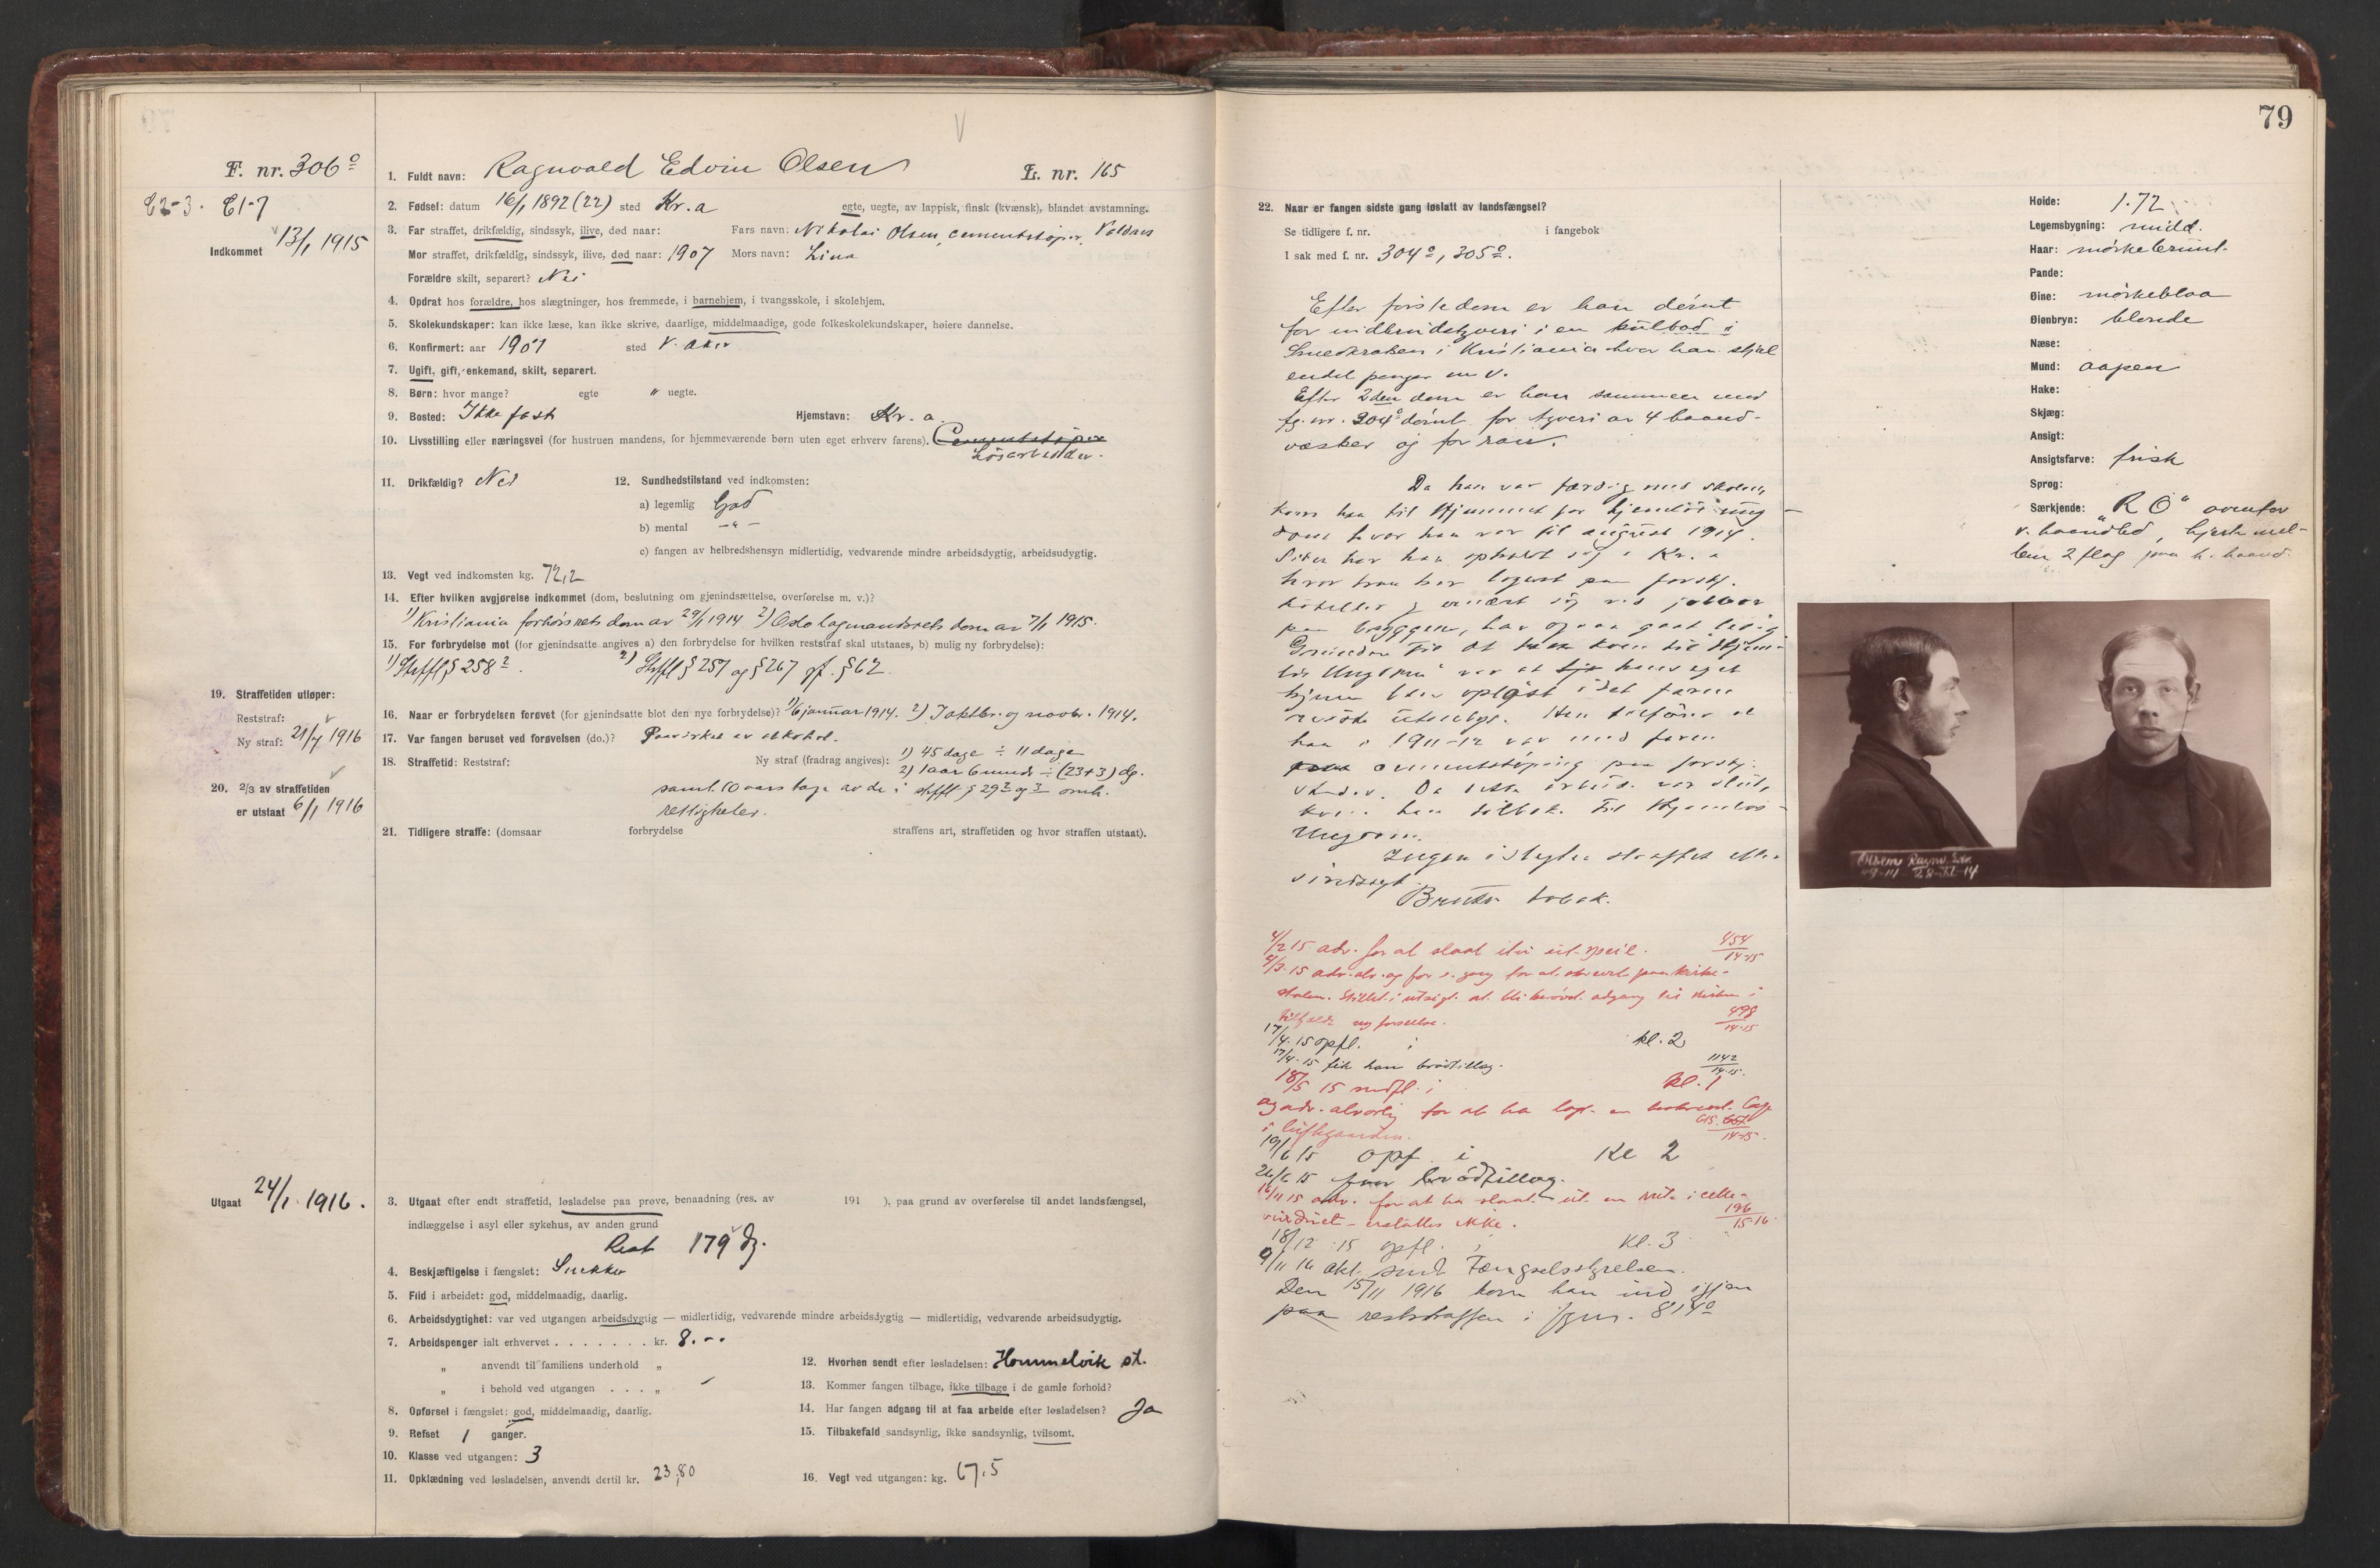 79
F. nr. 306º
1. Fuldt navn: Ragnvald Edvin Olsen L. nr. 165
C2-3. C1-7
Indkommet 13/1 1915
2. Fødsel: datum 16/1 1892 (22) sted Kr.a egte, uegte, av lappisk, finsk (kvænsk), blandet avstamning.
3. Far straffet, drikfældig, sindssyk, ilive, død naar: Fars navn: Nikolai Olsen, cementstøper,
Mor straffet, drikfældig, sindssyk, ilive, død naar: 1907 Mors navn: Lina
Forældre skilt, separert? Nei
4. Opdrat hos forældre, hos slægtninger, hos fremmede, i barnehjem, i tvangsskole, i skolehjem.
5. Skolekundskaper: kan ikke læse, kan ikke skrive, daarlige, middelmaadige, gode folkeskolekundskaper, høiere dannelse.
6. Konfirmert: aar 1907 sted V. Aker
7. Ugift, gift, enkemand, skilt, separert.
8. Børn: hvor mange? egte " uegte.
9. Bosted: Ikke fast Hjemstavn: Kr. a.
10. Livsstilling eller næringsvei (for hustruen mandens, for hjemmeværende børn uten eget erhverv farens). Cementstøper
Løsarbeider.
11. Drikfældig? Nei 12. Sundhedstilstand ved indkomsten:
a) legemlig God
b) mental -"-
c) fangen av helbredshensyn midlertidig, vedvarende mindre arbeidsdygtig, arbeidsudygtig.
13. Vegt ved indkomsten kg. 72,2
14. Efter hvilken avgjørelse indkommet (dom, beslutning om gjenindsættelse, overførelse m. v.)?
1) Kristiania forhørsrets dom av 29/1 1914 2) Oslo lagmandsrets dom av 7/1 1915.
15. For forbrydelse mot (for gjenindsatte angives a) den forbrydelse for hvilken reststraf skal utstaaes, b) mulig ny forbrydelse):
1) Strffl § 258². 2) Strffl § 257 og § 267 jf. § 62.
19. Straffetiden utløper:
Reststraf:
Ny straf: 21/7 1916
16. Naar er forbrydelsen forøvet (for gjenindsatte blot den nye forbrydelse)? 1) 6 januar 1914. 2) I oktbr. og novbr. 1914.
17. Var fangen beruset ved forøvelsen (do.)? Paavirket av alkohol.
18. Straffetid: Reststraf: Ny straf (fradrag angives): 1) 45 dage ÷ 11 dage
2) 1 aar 6 mndr ÷ (23+3) dg.
samt 10 aars tap av de i strffl § 29² og ³ omh.
rettigheter.
20. 2/3 av straffetiden
er utstaat 6/1 1916
21. Tidligere straffe: (domsaar forbrydelse straffens art, straffetiden og hvor straffen utstaat).
Utgaat 24/1 1916.
3. Utgaat efter endt straffetid, løsladelse paa prøve, benaadning (res. av 191 ), paa grund av overførelse til andet landsfængsel,
indlæggelse i asyl eller sykehus, av anden grund
Rest 179 dg.
4. Beskjæftigelse i fængslet: Snekker
5. Flid i arbeidet: god, middelmaadig, daarlig.
6. Arbeidsdygtighet: var ved utgangen arbeidsdygtig — midlertidig, vedvarende mindre arbeidsdygtig — midlertidig, vedvarende arbeidsudygtig.
7. Arbeidspenger ialt erhvervet . . . . . . . kr. 8.--
" anvendt til familiens underhold "
" i behold ved utgangen . . . "
8. Opførsel i fængslet: god, middelmaadig, daarlig.
9. Refset 1 ganger.
10. Klasse ved utgangen: 3
11. Opklædning ved løsladelsen, anvendt dertil kr. 23,80
12. Hvorhen sendt efter løsladelsen: Hommelvik st.
13. Kommer fangen tilbage, ikke tilbage i de gamle forhold?
14. Har fangen adgang til at faa arbeide efter løsladelsen? Ja
15. Tilbakefald sandsynlig, ikke sandsynlig, tvilsomt.
16. Vegt ved utgangen: kg. 67.5
22. Naar er fangen sidste gang løslatt av landsfængsel?
Se tidligere f. nr. i fangebok
I sak med f. nr. 304º, 305º.
Efter første dom er han dømt
for indbrudstyveri i en kulbod i
Kristiania hvor han stjal
endel penger m. v.
Efter 2den dom er han sammen med
fg. nr. 304º dømt for tyveri av 4 haand-
væsker og for ran.
Da han var færdig med skolen,
kom han til Hjemmet for hjemløs ung-
dom hvor han var til august 1914.
Siden har han opholdt sig i Kr. a
hvor han har logert paa forskj.
hoteller og ernært sig ved
paa bryggen, har ogsaa gaat ledig.
Grunden til at han kom til Hjem-
løs Ungdom var at hans eget
hjem blev opløst idet faren
reiste utenbys. Han
han i 1911-12 var med faren
paa cementstøping paa forskj.
steder. Da dette arbeide var slut,
kom han tilbake til Hjemløs
Ungdom.
Ingen i slegten straffet eller
sindssyk.
Bruker tobak.
4/2 15 adv. for at slaat itu et speil. 454/14-15
4/3 15 adv. alv. og for s. gang for at ha skrevet paa kirke-
stolen. Stillet i utsigt at bli berøvet adgang til kirken i
tilfælde ny forseelse. 498/14-15
17/4. 15 opfl. i kl. 2
17/4. 15 fik han brødtillæg. 1142/14-15.
18/5 15 nedfl. i kl. 1
og adv. alvorlig for at ha
i luftgaarden. 615/14-15.
19/6 15 opf. i Kl 2
26/6 15 faar brødtillæg.
16/11 15 adv. for at ha slaat ut en rute i celle-
vinduet - erstattes ikke. 196/15-16
18/12 15 opfl. i Kl. 3
9/11 16 akt. sendt Fængselsstyrelsen.
Den 15/11 1916 kom han ind igjen
paa reststraffen i fgnr. 814º
Høide: 1.72
Legemsbygning: midd.
Haar: mørkebrunt.
Pande:
Øine: mørkeblaa
Øienbryn: blonde
Næse:
Mund: aapen
Hake:
Skjæg:
Ansigt:
Ansigtsfarve: frisk
Sprog:
Særkjende: "R O" ovenfor
v. haandled, hjerte mel-
lem 2 flag paa h. haand.
Olsen Ragnv. Edv.
28-XI-14